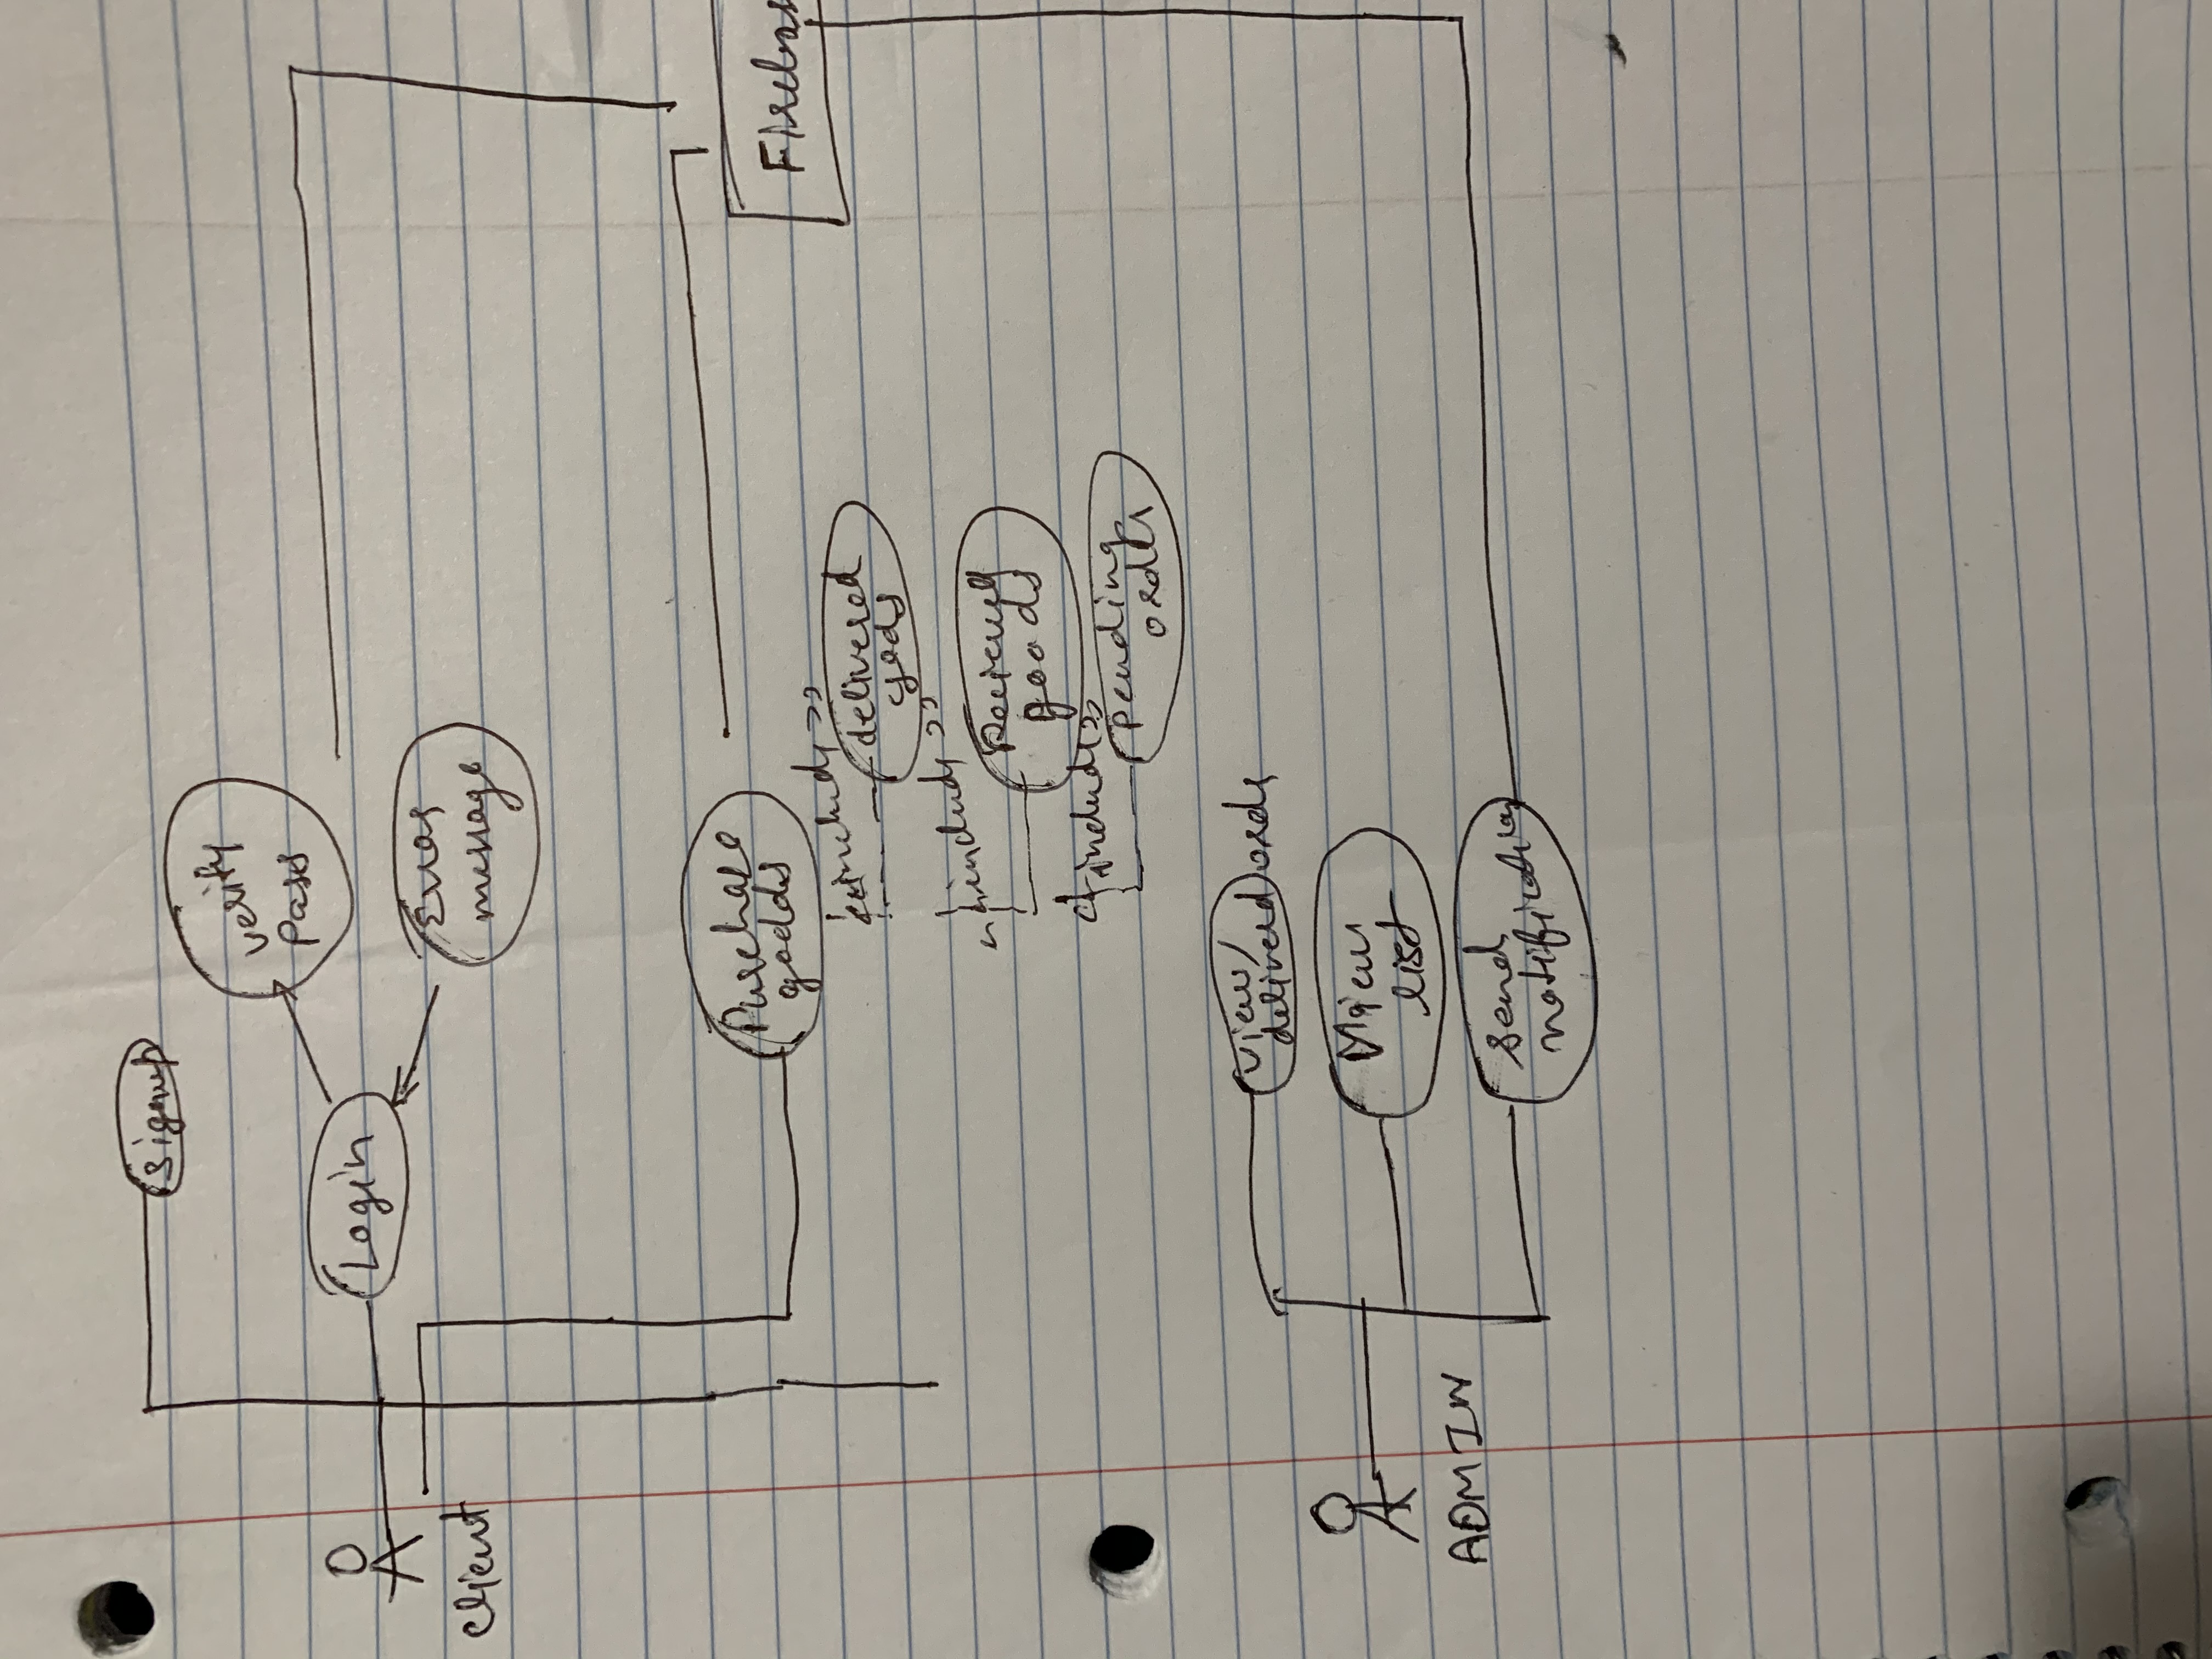 signup
verify
Pass
Login
client
Error
message
Purchase
goods
Fireba
<<include>>
delivered
goods
<<include>>
goods
<<include>>
Pending
order
view
deliverd order
View
list
ADMIN
send
notification